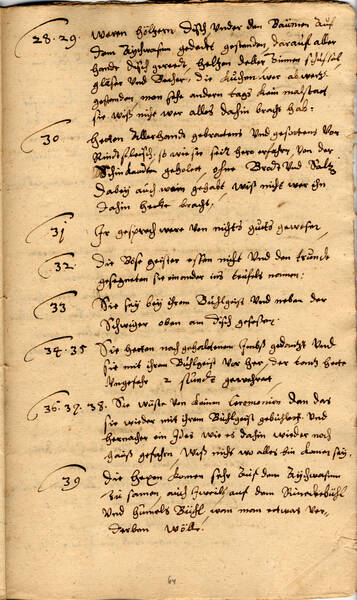 28. 29. Waren höltzern disch Under den Baumen Auf
dem Aychwasen gedeckt gestanden, darauf aller
handt disch gereth, heltzen deller Zinnen schüssel
gläser und Becher, die Kuchen wer abweegs
gestanden, man sehe andern tags kein malstatt
sie wiss nicht wer alles dahin bracht hab:
30 Hetten Allerhandt gebratens Und gesottens Von
Rindtfleisch, so wie sie seit hero erfahren, Von der
geholett, ohne Brodt Und Saltz
dabey auch wein gehabt wiss nicht wer ihn
dahin hette bracht,
31 Ir gesprech were Von nichts guets gewesen,
32. Die Böse geister essen nicht Und den trunck
gesegneten sie einander ins teüfels namen:
33 Sie sey bey ihrem Buhlgeist Und neben der
Schwiger oben am disch gesessen
34. 35 Sie hetten nach gehaltenem Imbiß gedantzt Und
sie mit ihrem Buhlgeist Vor her, der tantz hette
Ungefehr 2 stundt gewehret
36. 37. 38. Sie wüste Von keinen Ceremonien dan das
sie wieder mit ihrem Buhlgeist gebuhlet Und
hernacher ein Jdes wie es dahin wieder nach
hauß gefahren, Wiß nicht wo alles hin kamen sey,
39 Die hexen kamen sehr Auf dem Aychwasen
zu samen, auch Zweils auf dem
Und Bühl, wan man etwas Ver„
derben wölle,
64